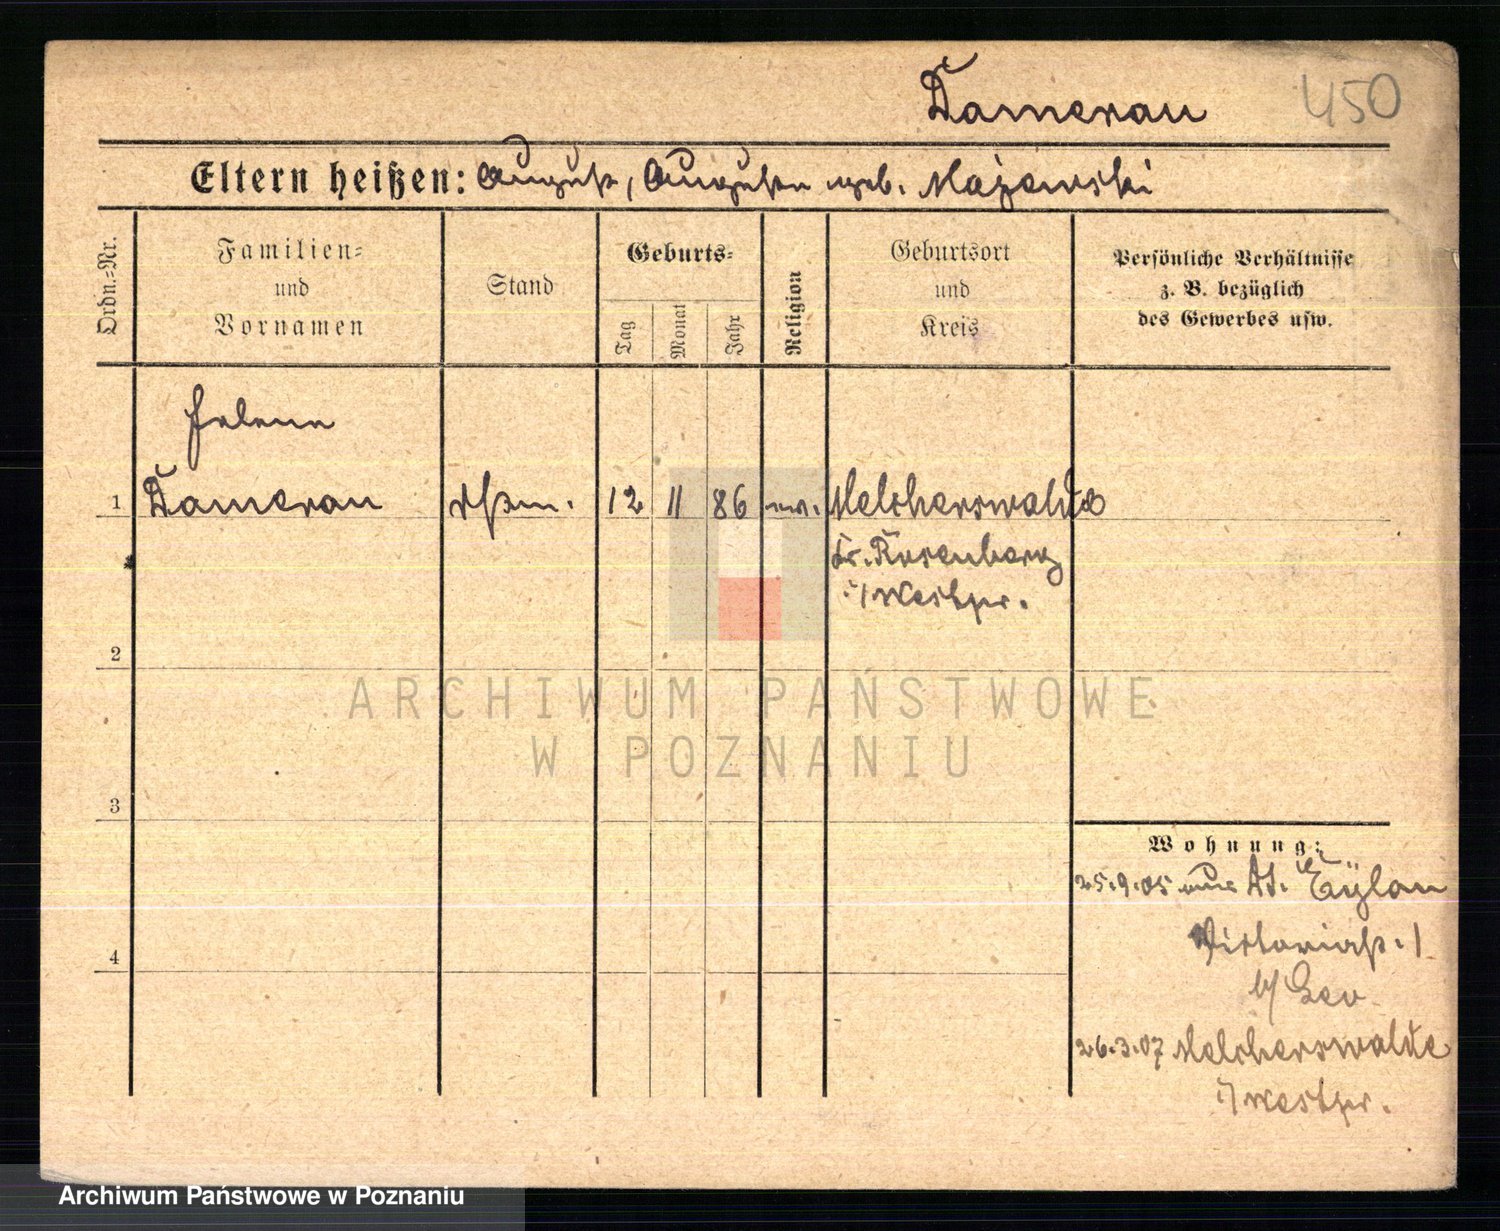 Damerau
450
Eltern heißen: August, Auguste geb. Majewski
Ordn.-Nr.
Familien-
und
Vornamen
Stand
Geburts-
Tag
Monat
Jahr
Religion
Geburtsort
und
Kreis
Persönliche Verhältnisse
z. B. bezüglich
des Gewerbes usw.
Helene
1 Damerau 12 11 86 ev. Melcherswalde
Kr. Rosenberg
i/Westpr.
2
ARCHIWUM PAŃSTWOWE
W POZNANIU
3
Wohnung:
25.9.05 aus Dt. Eylau
Victoriastr. 1
b/
4
26.3.07 Melcherswalde
i/Westpr.
Archiwum Państwowe w Poznaniu